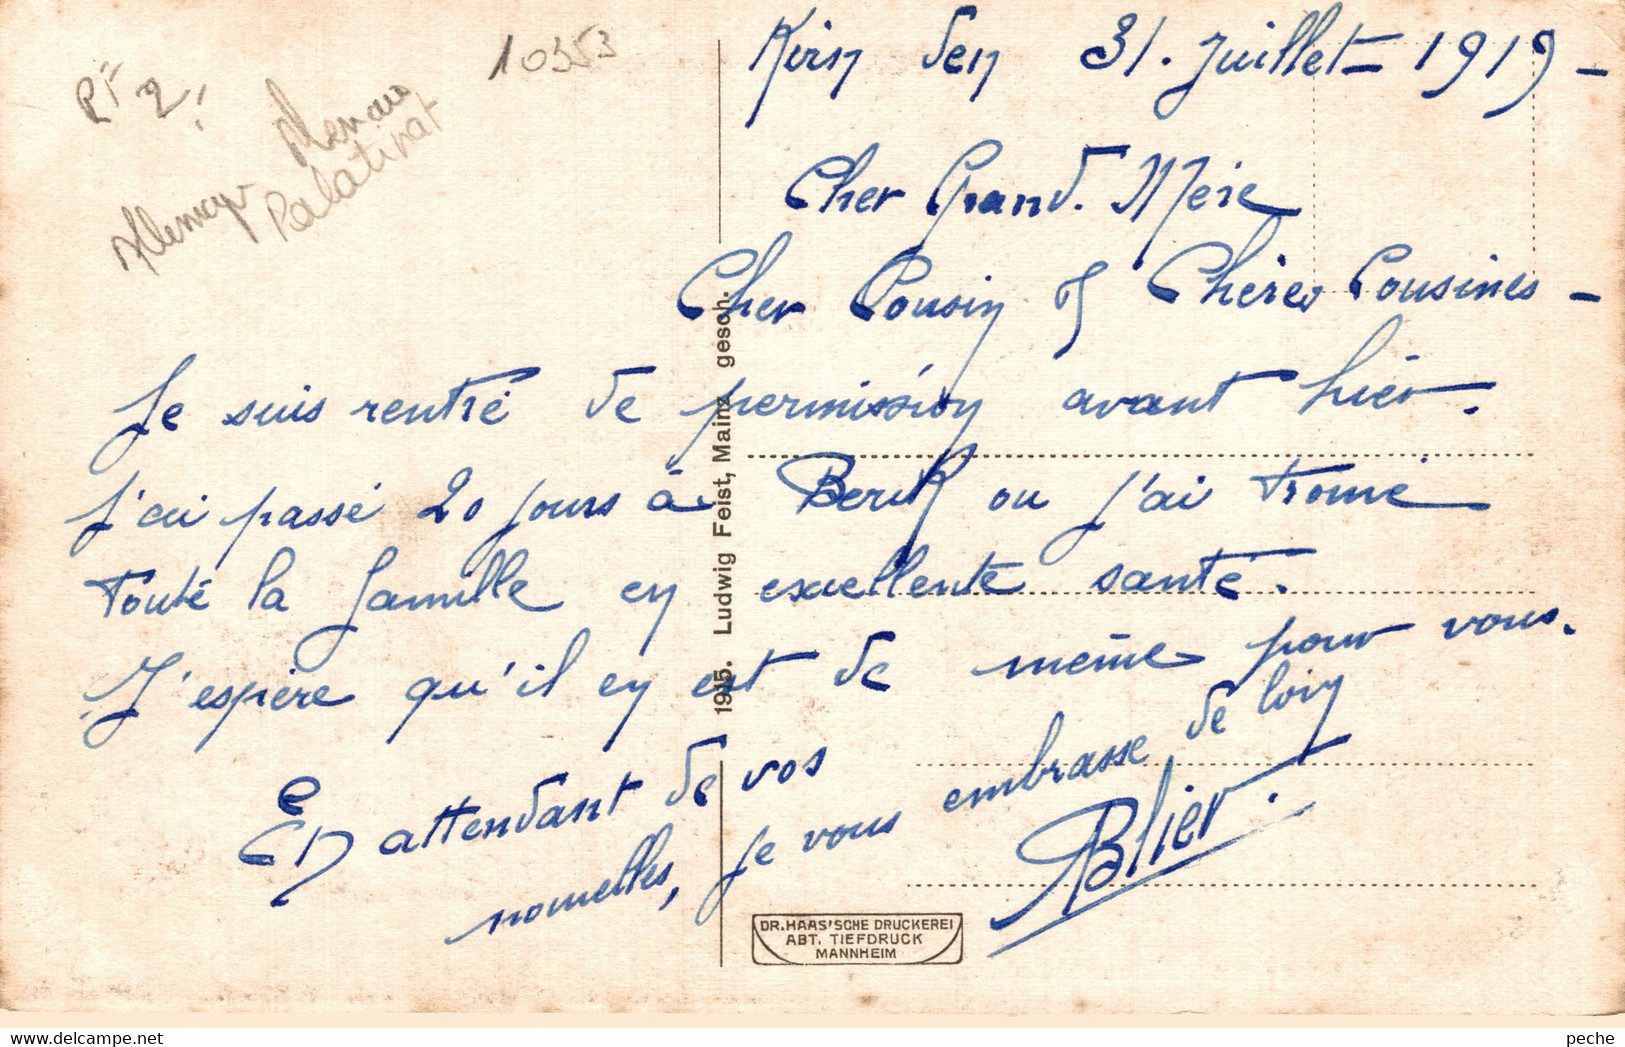 10353
PF 2!
Allemagne
Rhenanie
Palatinat
Kirn den 31. Juillet 1919 -
Cher Grand. Mère
Cher Cousin & Chères Cousines -
Je suis rentré de permission avant hier.
J'ai passé 20 jours à Berck ou j'ai trouvé
toute la famille en excellente santé.
J'espère qu'il en est de même pour vous.
En attendant de vos
nouvelles, je vous embrasse de loin
Blier.
1915. Ludwig Feist, Mainz gesch.
DR. HAAS'SCHE DRUCKEREI
ABT. TIEFDRUCK
MANNHEIM
peche